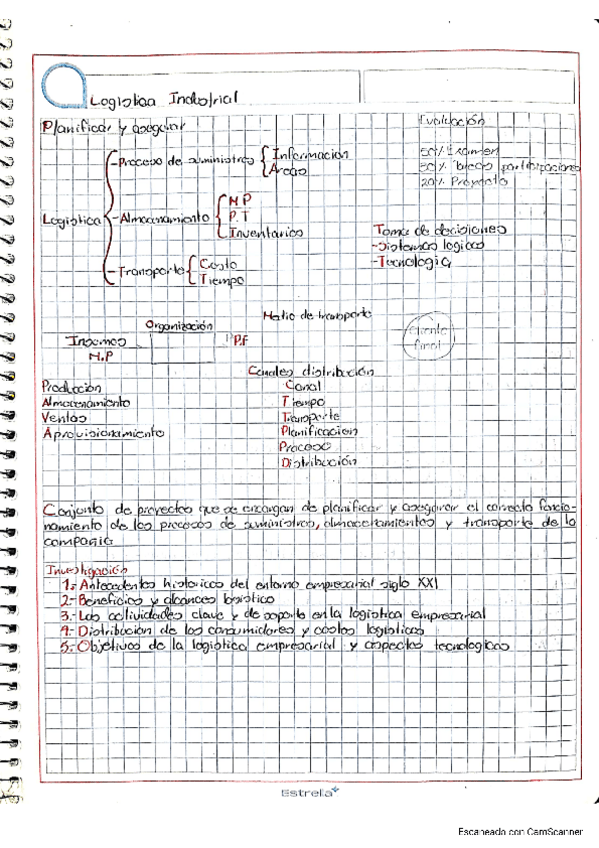 Logistica Industrial
Planificar y asegurar
Evaluación
50% Examen
30% Tareas participaciones
20% Proyecto
Logistica
-Proceso de suministros
Información
Areas
-Almacenamiento
M.P
P.T
Inventarios
-Transporte
Costo
Tiempo
Toma de decisiones
-Sistemas logicos
-Tecnologia
Organización
Insumos
M.P
P.F
Matio de transporte
cliente
final
Canales distribución
Producción
Almacenamiento
Ventas
Aprovisionamiento
Canal
Tiempo
Transporte
Planificacion
Proceso
Distribución
Conjunto de proyectos que se encargan de planificar y asegurar el correcto funcio-
namiento de los procesos de suministros, almacenamientos y transporte de la
compania
Investigación
1.- Antecedentes historicos del entorno empresarial siglo XXI
2.- Beneficios y alcances logistico
3.- Las actividades clave y de soporte en la logistica empresarial
4.- Distribución de los consumidores y costos logisticos
5.- Objetivos de la logistica empresarial y aspectos tecnologicos
Estrella
Escaneado con CamScanner